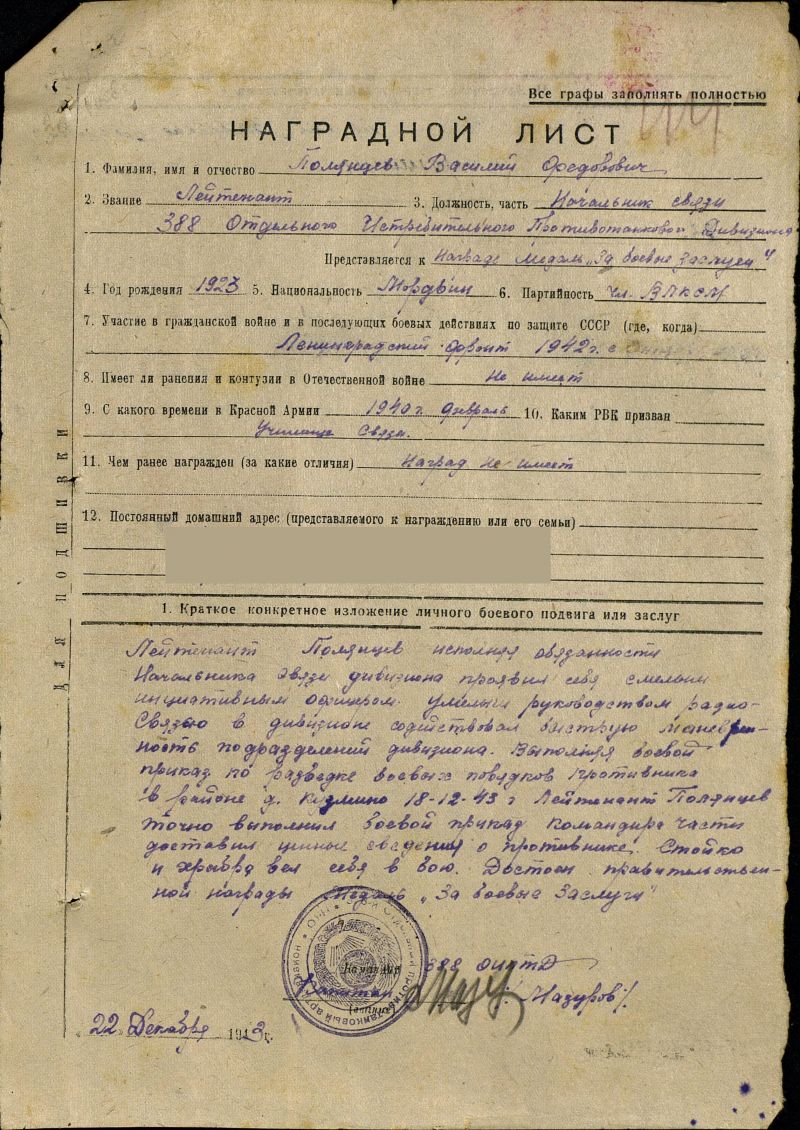 Все графы заполнять полностью
НАГРАДНОЙ ЛИСТ
1. Фамилия, имя и отчество Полянцев Василий Федорович
2. Звание Лейтенант 3. Должность, часть Начальник связи
388 Отдельного Истребительного Противотанковой Дивизиона
Представляется к Награде медаль „За боевые заслуги"
4. Год рождения 1923 5. Национальность Мордвин 6. Партийность чл. ВЛКСМ
7. Участие в гражданской войне и в последующих боевых действиях по защите СССР (где, когда)
Ленинградский фронт 1942 г. с
8. Имеет ли ранения и контузия в Отечественной войне не имеет
9. С какого времени в Красной Армии 1940 г. февраль 10. Каким РВК призван
Училище Связи.
11. Чем ранее награжден (за какие отличия) наград не имеет
12. Постоянный домашний адрес (представляемого к награждению или его семьи)
ДЛЯ ПОДШИВКИ
1. Краткое конкретное изложение личного боевого подвига или заслуг
Лейтенант Полянцев исполняя обязанности
Начальника связи дивизиона проявил себя смелым
инициативным офицером. умелым руководством радио-
связью в дивизионе содействовал быструю маневрен-
ность подразделений дивизиона. Выполняя боевой
приказ по разведке боевых порядков противника
в районе д. Кузмино 18-12-43 г Лейтенант Полянцев
точно выполнил боевой приказ командира части
доставил ценные сведения о противнике. Стойко
и храбро вел себя в бою. Достоен правительствен-
ной награды медаль „За боевые заслуги"
Командир 388 ОИПТД
Капитан /Мазуров/
22 Декабря 1943 г.